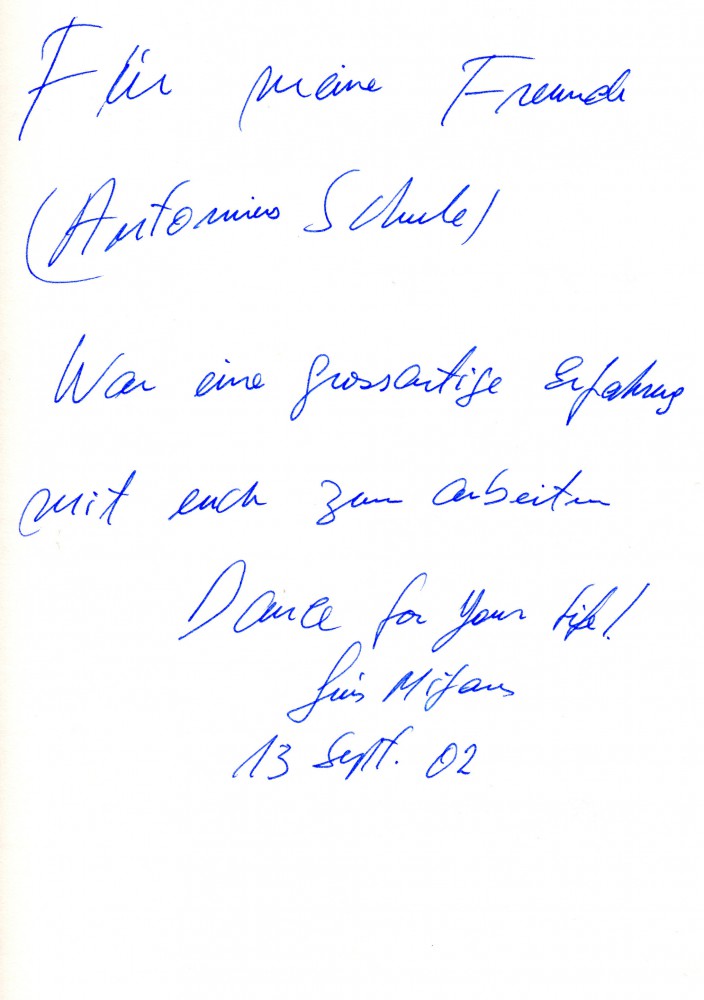 Für meine Freunde
(Antonius Schule)
War eine grossartige Erfahrung
mit euch zum arbeiten
Dance for your life!
Luis Mijans
13 Sept. 02